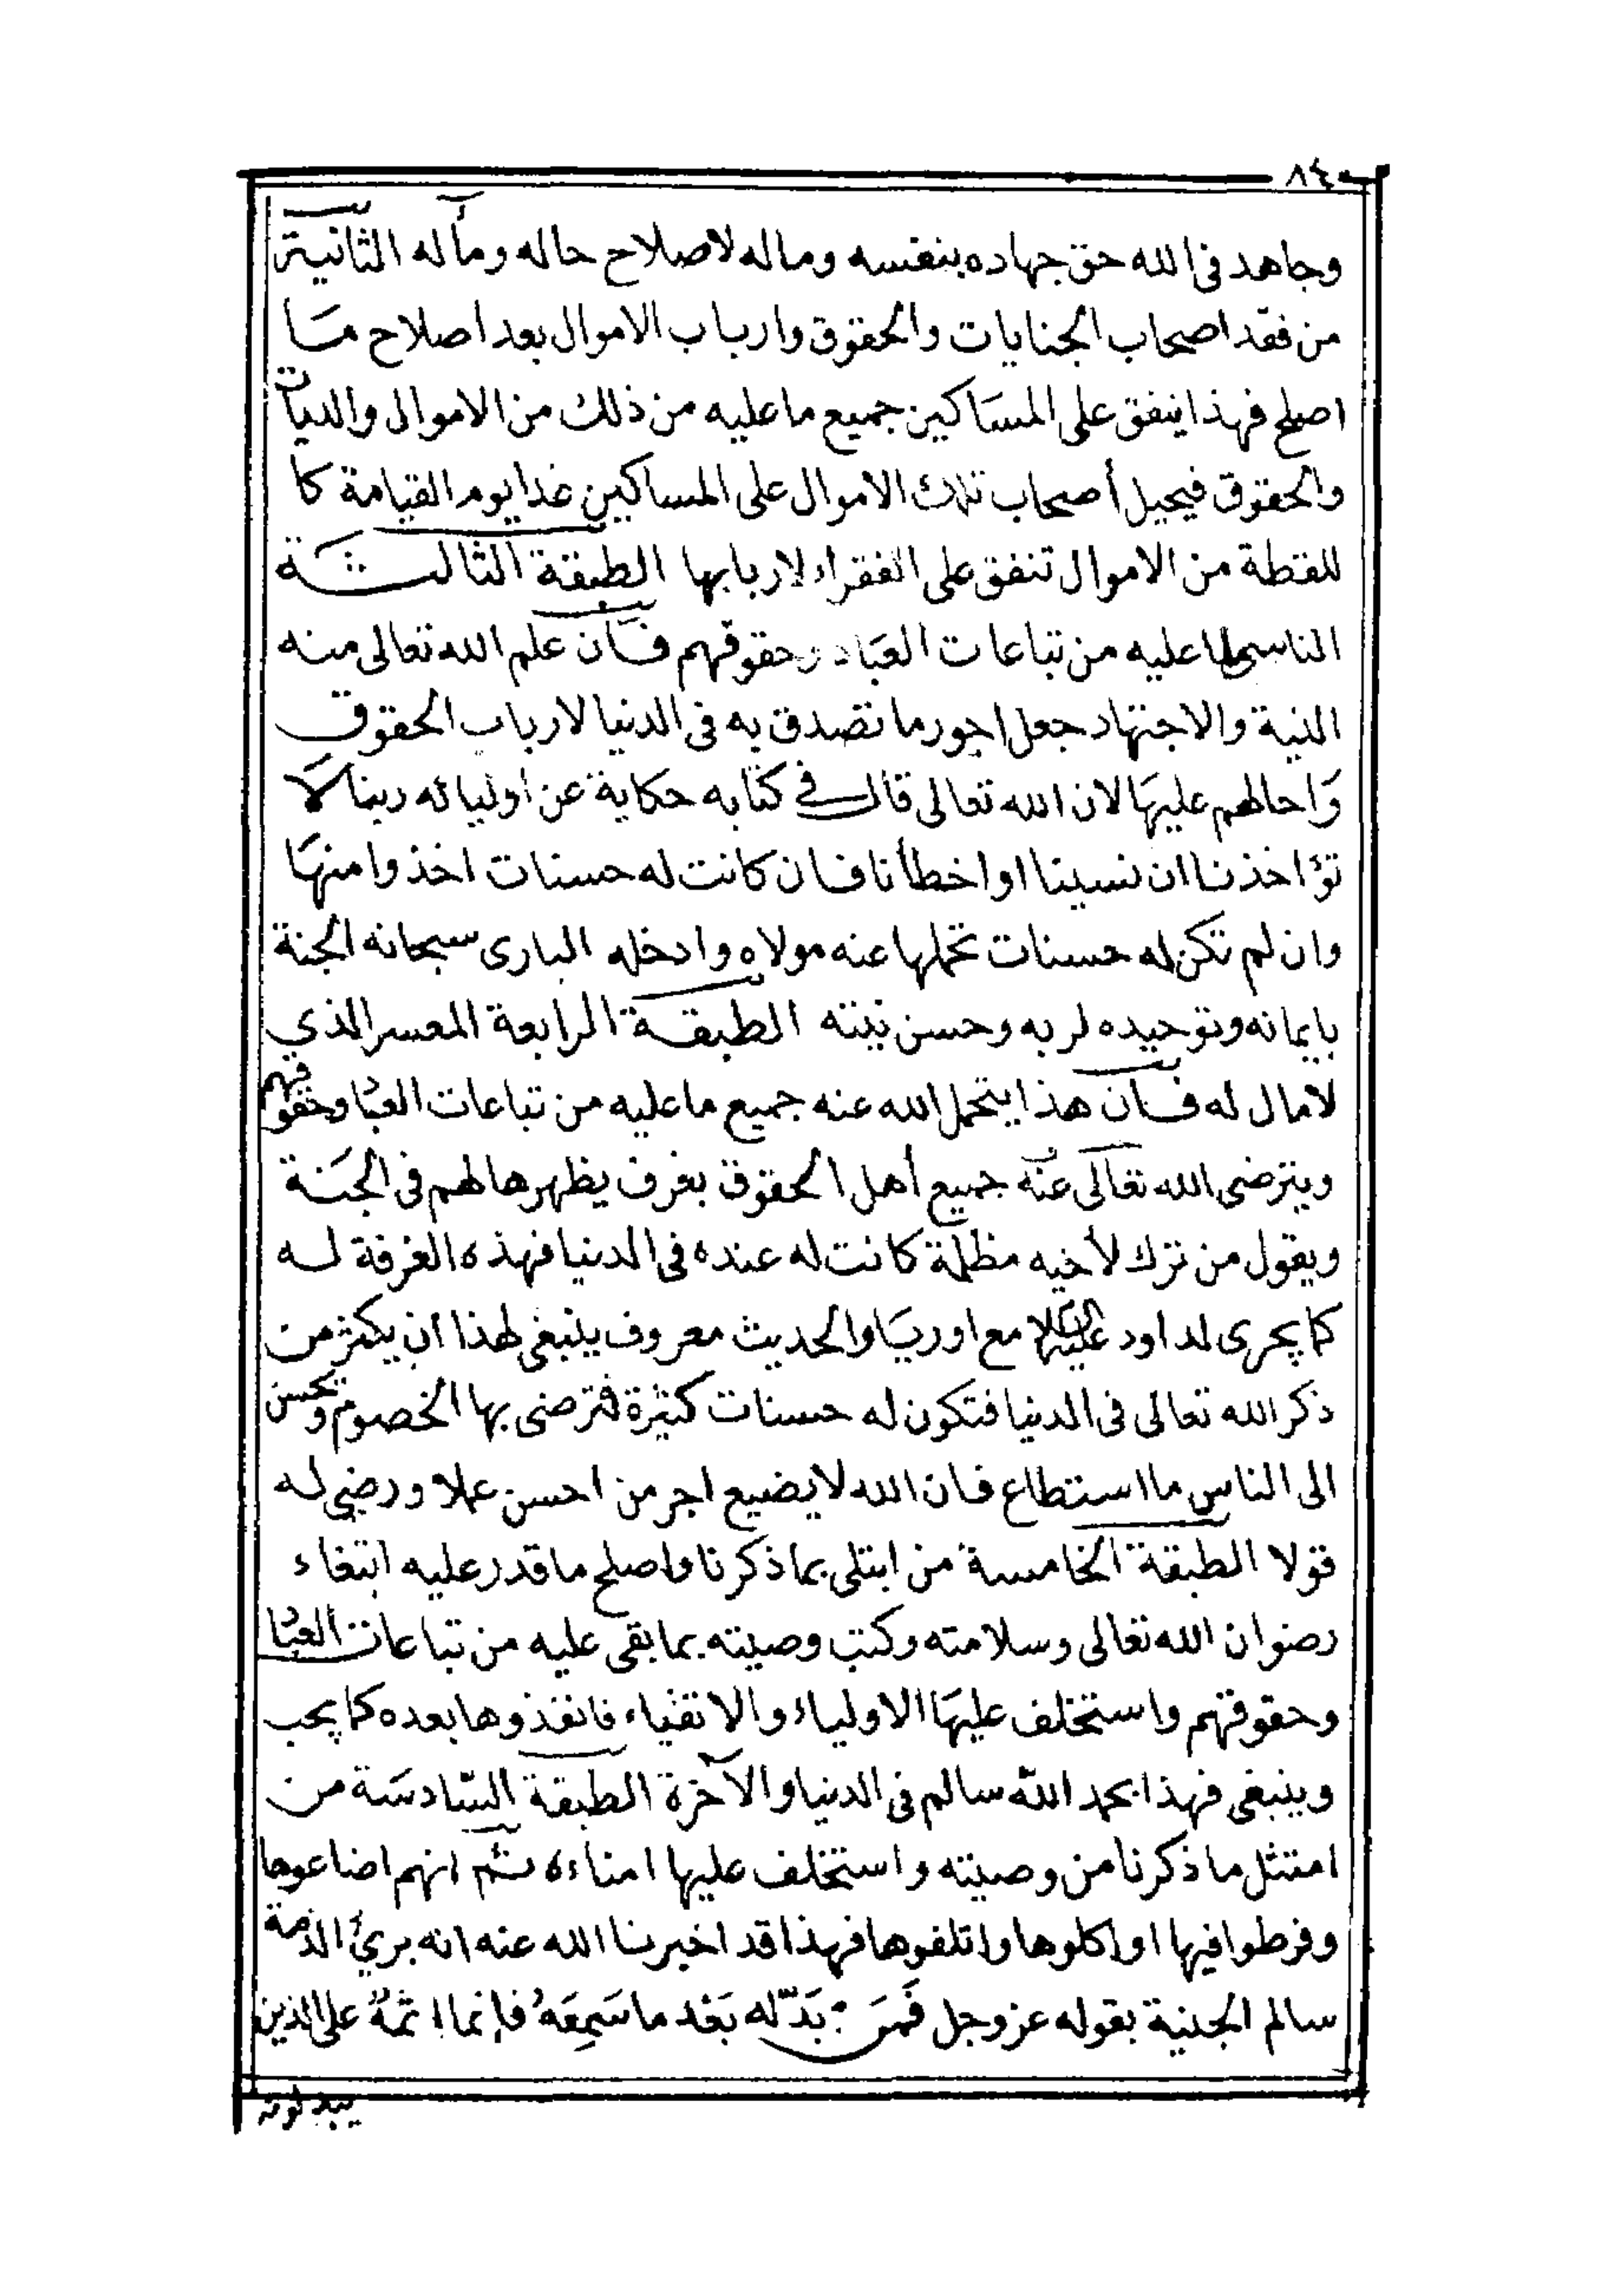 ٨٤
وجاهد فى الله حق جهاده بنفسه وماله لاصلاح حاله ومآله الثانية
من فقد اصحاب الجنايات والحقوق وارباب الاموال بعد اصلاح مَا
اصلح فهذا ينفق على المسَاكين جميع ما عليه من ذلك من الاموال والديات
والحقوق فيحيل أصحاب تلك الاموال على المساكين غدا يوم القيامة كا
للقطة من الاموال تنفق على الفقراء لاربابها الطبقة الثالثَة
الناسى لما عليه من تباعات العبَاد وحقوقهم فَان علم الله تعالى منه
النية والاجتهاد جعل اجور ما تصدق به فى الدنيا لارباب الحقوق
وَاحالهم عليهَا لان الله تعالى قال في كتابه حكاية عن اوليائه ربنا لَا
تؤاخذنا ان نسينا او اخطأنا فان كانت له حسنات اخذوا منهَا
وان لم تكن له حسنات تحملها عنه مولاه وادخله البارى سبحانه الجنة
بايمانه وتوحيده لربه وحسن نيته الطبقة الرابعة المعسر الذي
لا مال له فان هذا يتحمل الله عنه جميع ما عليه من تباعات العبَاد وحقوقهم
ويترضى الله تعَالى عنه جميع أهل الحقوق بغرف يظهرها لهم فى الجَنة
ويقول من ترك لأخيه مظلمة كانت له عنده فى الدنيا فهذه الغرفة له
كما يجرى لداود عليه السلام مع اوريَا والحديث معروف ينبغى لهذا ان يكثر من
ذكر الله تعالى فى الدنيا فتكون له حسنات كثيرة فترضى بها الخصوم ويحسن
الى الناس ما استطاع فان الله لا يضيع اجر من احسن عملا ورضي له
قولا الطبقة الخامسة من ابتلى بما ذكرنا واصلح ما قدر عليه ابتغاء
رضوان الله تعالى وسلامته وكتب وصيته بما بقى عليه من تباعات العبَاد
وحقوقهم واستخلف عليهَا الاولياء والاتقياء فانفذوها بعده كما يجب
وينبغى فهذا بحمد اللّه سالم فى الدنيا والآخرة الطبقة السّادسَة من
امتثل ما ذكرنا من وصيته واستخلف عليها امناءه ثم انهم اضاعوها
وفرطوا فيها او اكلوها واتلفوها فهذا قد اخبرنا الله عنه انه بريئ الذمة
سالم الجنية بقوله عز وجل فَمَن بَدّله بَعْد ما سَمِعَهُ فإنما اثمهُ على الذين
يبدلونه